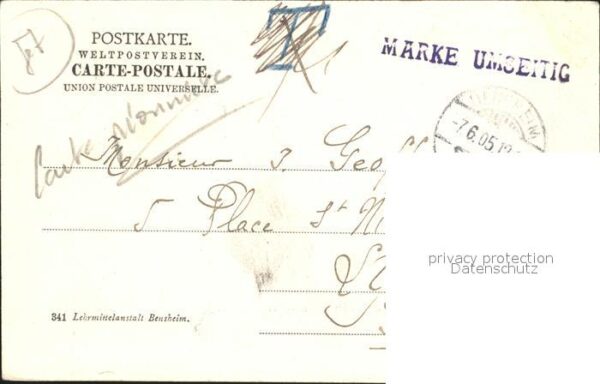 POSTKARTE.
WELTPOSTVEREIN.
CARTE-POSTALE.
UNION POSTALE UNIVERSELLE.
T
MARKE UMSEITIG
-7.6.05.12
Carte
Monsieur J. Geof
5 Place St Ni
privacy protection
Datenschutz
341 Lehrmittelanstalt Bensheim.